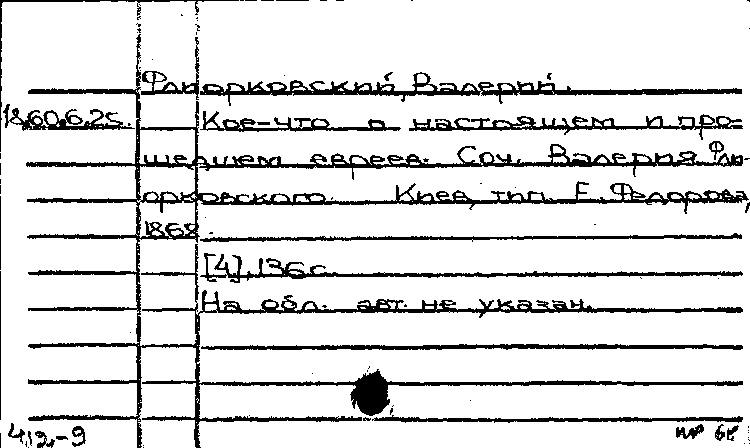 Флиорковский, Валерий.
18.60.6.25. Кое-что о настоящем и про-
шедшем евреев. Соч. Валерия Фли-
орковского. Киев, тип. Е. Федорова,
1868.
[4], 136 с.
На обл. авт. не указан.
412-9